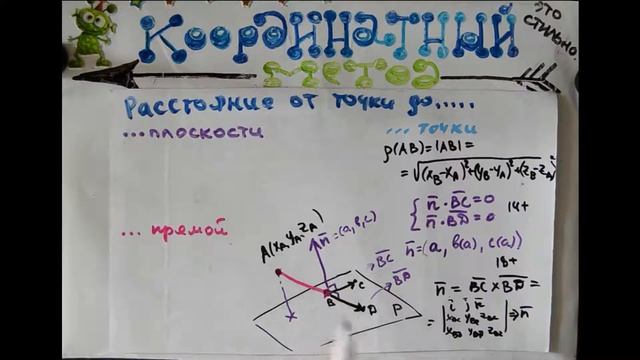 Координатный
метод
это
стильно.
Расстояние от точки до.....
...плоскости
...точки
ρ(AB)=|AB|=
=√((x_B-x_A)²+(y_B-y_A)²+(z_B-z_A)²)
{n̄·B̄C̄=0
n̄·B̄D̄=0
14+
...прямой
A(x_A,y_A,z_A)
n̄=(a,b,c)
n̄=(a, b(a), c(a))
18+
B̄C̄
B̄D̄
B
C
D
P
n̄ = B̄C̄×B̄D̄=
=|i̅ j̅ k̅
x_BC y_BC z_BC
x_BD y_BD z_BD|⇒n̄